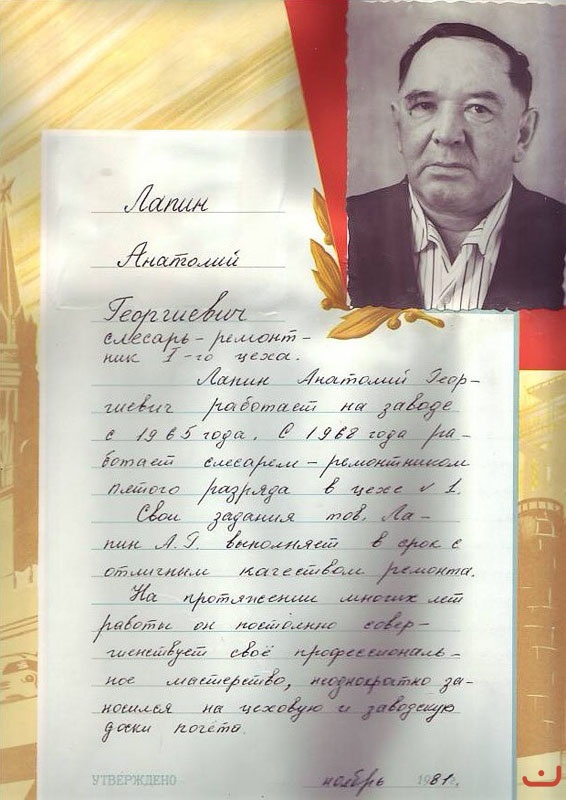 Лапин
Анатолий
Георгиевич
слесарь-ремонт-
ник I-го цеха.
Лапин Анатолий Геор-
гиевич работает на заводе
с 1965 года. С 1968 года ра-
ботает слесарем-ремонтником
пятого разряда в цехе № 1.
Свои задания тов. Ла-
пин А.Г. выполняет в срок с
отличным качеством ремонта.
На протяжении многих лет
работы он постоянно совер-
шенствует своё профессиональ-
ное мастерство, неоднократно за-
носился на цеховую и заводскую
доски почёта.
УТВЕРЖДЕНО ноябрь 1981г.